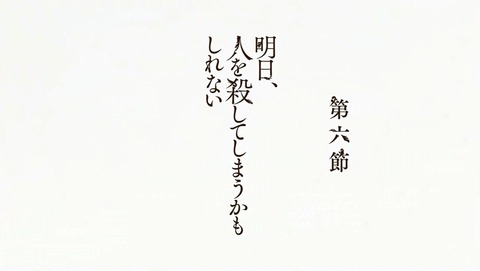 第六節
明日、
人を殺してしまうかも
しれない